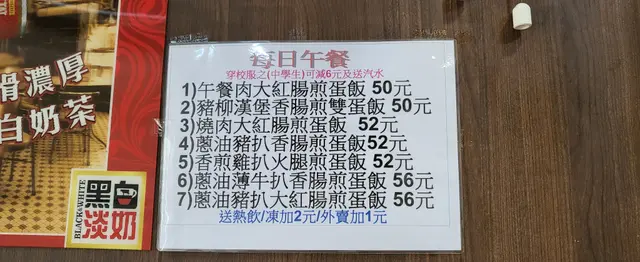 滑濃厚
白奶茶
BLACK&WHITE
黑白
淡奶
每日午餐
穿校服之(中學生)可減6元及送汽水
1)午餐肉大紅腸煎蛋飯 50元
2)豬柳漢堡香腸煎雙蛋飯 50元
3)燒肉大紅腸煎蛋飯 52元
4)蔥油豬扒香腸煎蛋飯52元
5)香煎雞扒火腿煎蛋飯 52元
6)蔥油薄牛扒香腸煎蛋飯 56元
7)蔥油豬扒大紅腸煎蛋飯 56元
送熱飲/凍加2元/外賣加1元